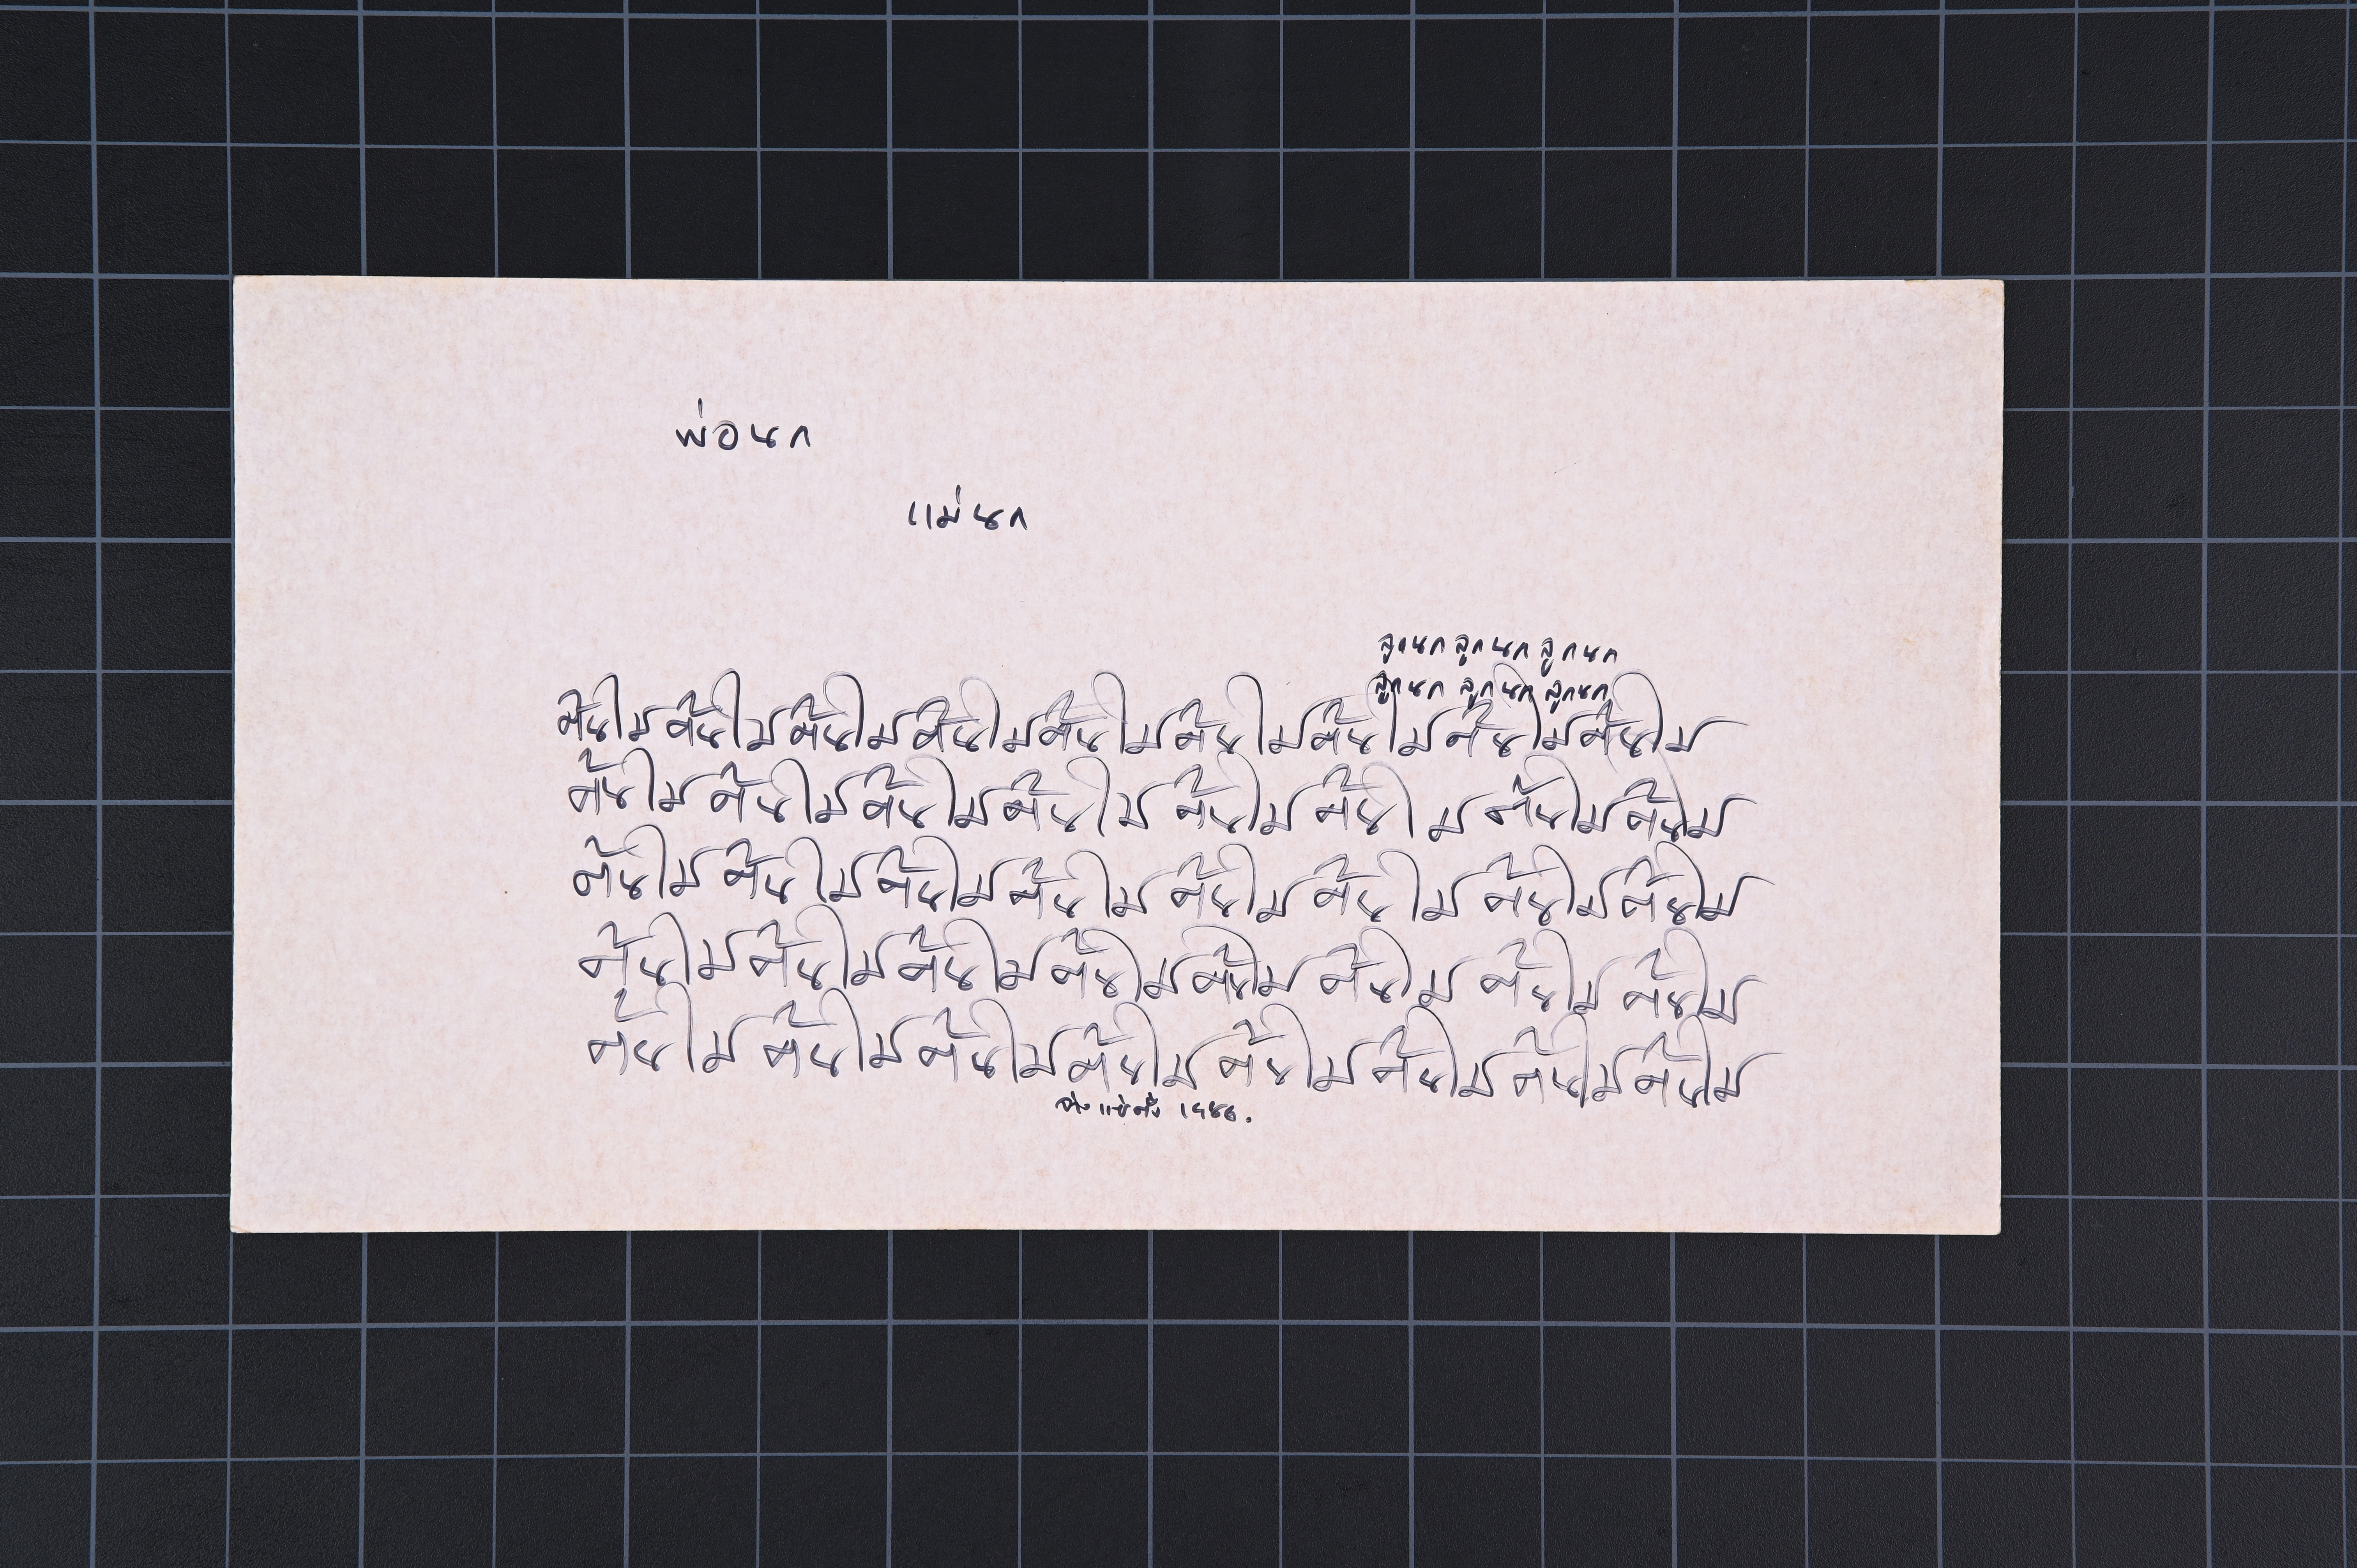 พ่อนก
แม่นก
ลูกนก ลูกนก ลูกนก
ลูกนก ลูกนก ลูกนก
ต้นไม้ต้นไม้ต้นไม้ต้นไม้ต้นไม้ต้นไม้ต้นไม้ต้นไม้ต้นไม้
ต้นไม้ต้นไม้ต้นไม้ต้นไม้ต้นไม้ต้นไม้ต้นไม้ต้นไม้
ต้นไม้ต้นไม้ต้นไม้ต้นไม้ต้นไม้ต้นไม้ต้นไม้ต้นไม้
ต้นไม้ต้นไม้ต้นไม้ต้นไม้ต้นไม้ต้นไม้ต้นไม้ต้นไม้
ต้นไม้ต้นไม้ต้นไม้ต้นไม้ต้นไม้ต้นไม้ต้นไม้ต้นไม้
จ่าง แซ่ตั้ง 1986.